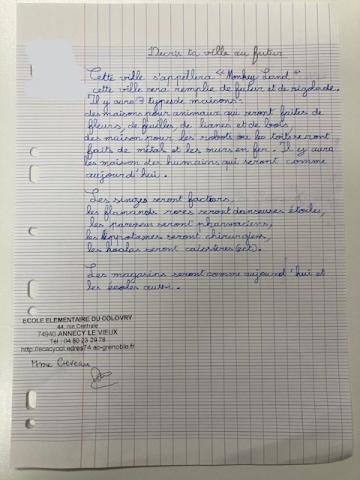 Décris ta ville du futur
Cette ville s'appellera "Monkey Land"
cette ville sera remplie de futur et de rigolade.
Il y aura 3 types de maisons:
des maisons pour animaux qui seront faites de
fleurs, de feuilles, de lianes et de bois
des maison pour les robots ou les toits seront
faits de métal et les murs en fer. Il y aura
les maison des humains qui seront comme
aujourd'hui.
Les singes seront factors,
les flamands roses seront danseuses étoiles,
les paresseux seront pharmaciens,
les hyppotames seront chirurgiens
les koalas seront caissières (ect).
Les magasins seront comme aujourd'hui et
les écoles aussi.
ECOLE ELEMENTAIRE DU COLOVRY
44, rue Centrale
74940 ANNECY LE VIEUX
Tél : 04 50 23 29 78
http://ecacycol.edres74.ac-grenoble.fr
Mme